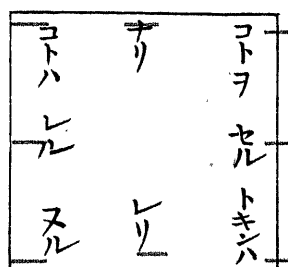 コトヲ
セル
トキンハ
ナリ
レリ
コトハ
レル
ヌル